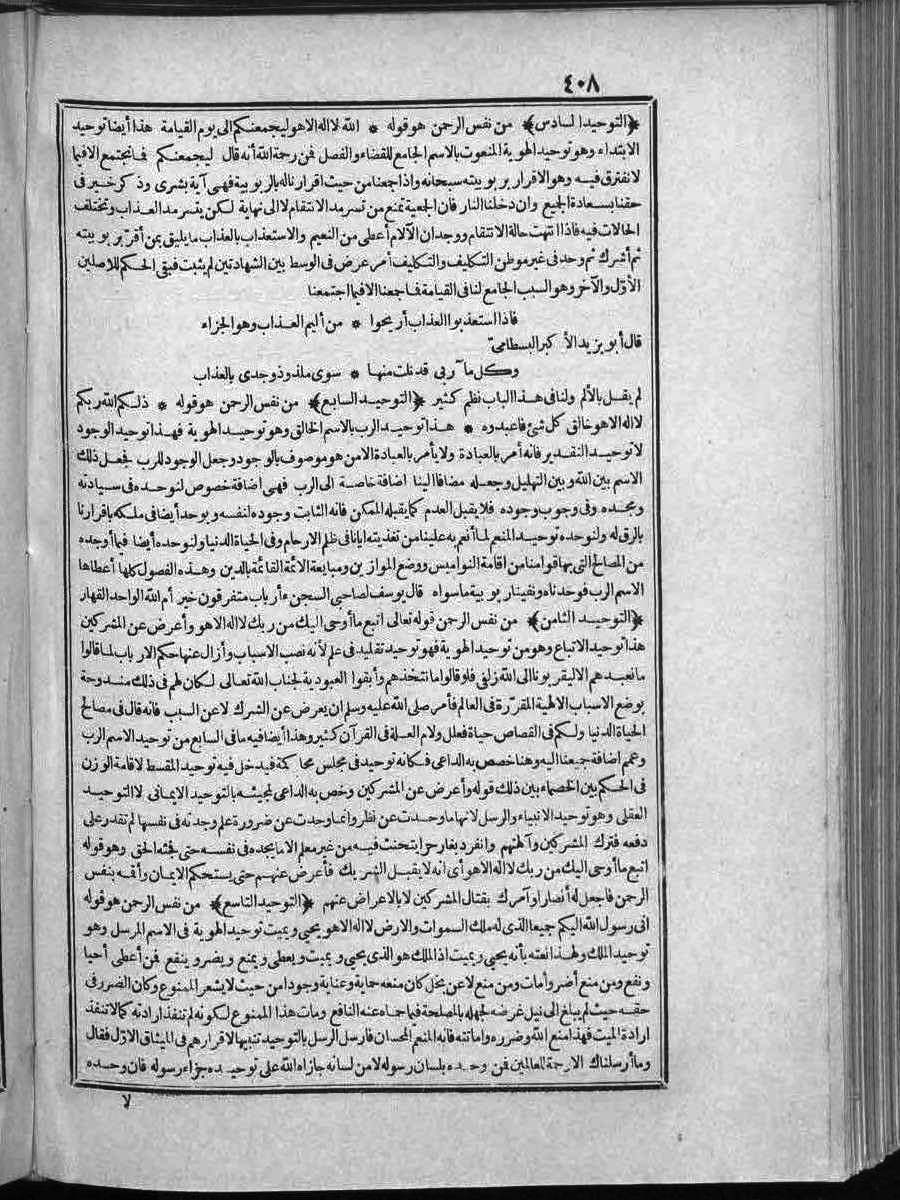 ٤٠٨
﴿التوحيد السادس﴾ من نفس الرحمن هو قوله * الله لا اله الا هو ليجمعنكم الى يوم القيامة هذا أيضا توحيد
الابتداء وهو توحيد الهوية المنعوت بالاسم الجامع للقضاء والفصل فمن رحمة الله أنه قال ليجمعنكم فما نجتمع الا فيما
لا نفترق فيه وهو الاقرار بربوبيته سبحانه واذا جمعنا من حيث اقرارنا له بالربوبية فهى آية بشرى وذكر خير فى
حقنا بسعادة الجميع وان دخلنا النار فان الجمعية تمنع من تسرمد الانتقام لا الى نهاية لكن يتسرمد العذاب وتختلف
الحالات فيه فاذا انتهت حالة الانتقام ووجدان الآلام أعطى من النعيم والاستعذاب بالعذاب ما يليق بمن أقر بربوبيته
ثم أشرك ثم وحد فى غير موطن التكليف والتكليف أمر عرض فى الوسط بين الشهادتين لم يثبت فبقى الحكم للاصلين
الاوّل والآخر وهو السبب الجامع لنا فى القيامة فما جمعنا الا فيما اجتمعنا
فاذا استعذبوا العذاب أريحوا * من أليم العذاب وهو الجزاء
قال أبو يزيد الأكبر البسطامى
وكل مآربى قد نلت منها * سوى ملذوذ وجدى بالعذاب
لم يقل بالألم ولنا فى هذا الباب نظم كثير ﴿التوحيد السابع﴾ من نفس الرحمن هو قوله * ذلكم الله ربكم
لا اله الا هو خالق كل شئ فاعبدوه * هذا توحيد الرب بالاسم الخالق وهو توحيد الهوية فهذا توحيد الوجود
لا توحيد التقدير فانه أمر بالعبادة ولا يأمر بالعبادة الا من هو موصوف بالوجود وجعل الوجود للرب فجعل ذلك
الاسم بين الله وبين التهليل وجعله مضافا الينا اضافة خاصة الى الرب فهى اضافة خصوص لنوحده فى سيادته
ومجده وفى وجوب وجوده فلا يقبل العدم كما يقبله الممكن فانه الثابت وجوده لنفسه ويوحد أيضا فى ملكه باقرارنا
بالرق له ولنوحده توحيد المنعم لما أنعم به علينا من تغذيته ايانا فى ظلم الارحام وفى الحياة الدنيا ولنوحده أيضا فيما أوجده
من المصالح التى بها قوامنا من اقامة النواميس ووضع الموازين ومبايعة الائمة القائمة بالدين وهذه الفصول كلها أعطاها
الاسم الرب فوحدناه ونفينا ربوبية ما سواه قال يوسف لصاحبى السجن أأرباب متفرقون خير أم الله الواحد القهار
﴿التوحيد الثامن﴾ من نفس الرحمن قوله تعالى اتبع ما أوحى اليك من ربك لا اله الا هو وأعرض عن المشركين
هذا توحيد الاتباع وهو من توحيد الهوية فهو توحيد تقليد فى علم لأنه نصب الاسباب وأزال عنها حكم الارباب لما قالوا
ما نعبدهم الا ليقربونا الى الله زلفى فلو قالوا ما نتخذهم وأبقوا العبودية لجناب الله تعالى لكان لهم فى ذلك مندوحة
بوضع الاسباب الالهية المقرّرة فى العالم فأمر صلى الله عليه وسلم ان يعرض عن الشرك لا عن السبب فانه قال فى مصالح
الحياة الدنيا ولكم فى القصاص حياة فعلل ولام العلة فى القرآن كثير وهذا أيضا فيه ما فى السابع من توحيد الاسم الرب
وعمم اضافة جميعنا اليه وهنا خصص به الداعى فكانه توحيد فى مجلس محاكمة فيدخل فيه توحيد المقسط لاقامة الوزن
فى الحكم بين الخصماء بين ذلك قوله وأعرض عن المشركين وخص به الداعى لمجيئه بالتوحيد الايمانى لا التوحيد
العقلى وهو توحيد الانبياء والرسل لانها ما وحدت عن نظر وانما وحدت عن ضرورة علم وجدته فى نفسها لم تقدر على
دفعه فترك المشركين وآلهتهم وانفرد بغار حرا يتحنث فيه من غير معلم الا ما يجده فى نفسه حتى فجئه الحق وهو قوله
اتبع ما أوحى اليك من ربك لا اله الا هو أى انه لا يقبل الشريك فأعرض عنهم حتى يستحكم الايمان وأقمه بنفس
الرحمن فاجعل له أنصارا وآمرك بقتال المشركين لا بالاعراض عنهم ﴿التوحيد التاسع﴾ من نفس الرحمن هو قوله
انى رسول الله اليكم جميعا الذى له ملك السموات والارض لا اله الا هو يحيى ويميت توحيد الهوية فى الاسم المرسل وهو
توحيد الملك ولهذا نعته بأنه يحيى ويميت اذ الملك هو الذى يحيى ويميت ويعطى ويمنع ويضر وينفع فمن أعطى أحيا
ونفع ومن منع أضر وأمات ومن منع لا عن بخل كان منعه حماية وعناية وجودا من حيث لا يشعر الممنوع وكان الضرر فى
حقه حيث لم يبلغ الى نيل غرضه لجهله بالمصلحة فيما حماه عنه النافع ومات هذا الممنوع لكونه لم تنفذ ارادته كما لا تنفذ
ارادة الميت فهذا منع الله وضرره واماتته فانه المنعم المحسان فارسل الرسل بالتوحيد تنبيها لاقرارهم فى الميثاق الاوّل فقال
وما أرسلناك الا رحمة للعالمين فمن وحده بلسان رسوله لا من لسانه جازاه الله على توحيده جزاء رسوله فان وحده
لا